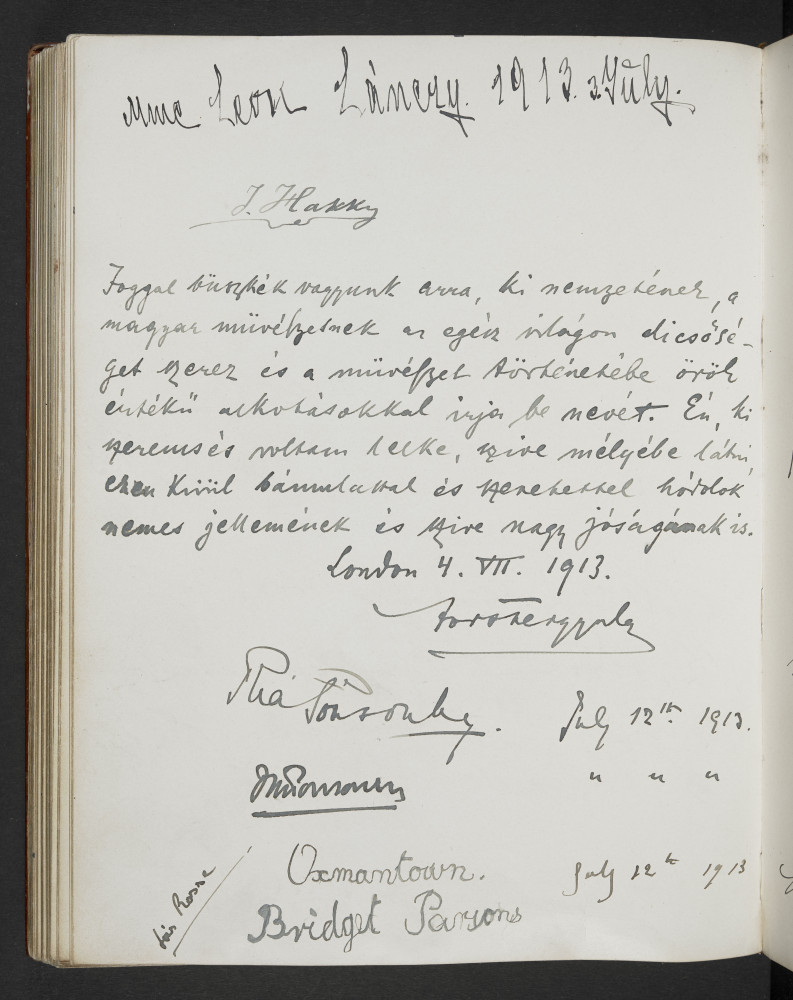 Mme Leon Lánczy. 1913. 3 July.
J. Hakky
Joggal büszkék vagyunk arra, ki nemzetének, a
magyar művészetnek az egész világon dicsősé-
get szerez és a művészet történetébe örök
értékű alkotásokkal irja be nevét. Én, ki
szerencsés voltam lelke, szive mélyébe látni,
ezen kivül bámulattal és szeretettel hódolok
nemes jellemének és szive nagy jóságának is.
London 4. VII. 1913.
Ria Ponsonby. July 12th. 1913.
Ponsonby " " "
Oxmantown. July 12th 1913
Bridget Parsons
Rosse